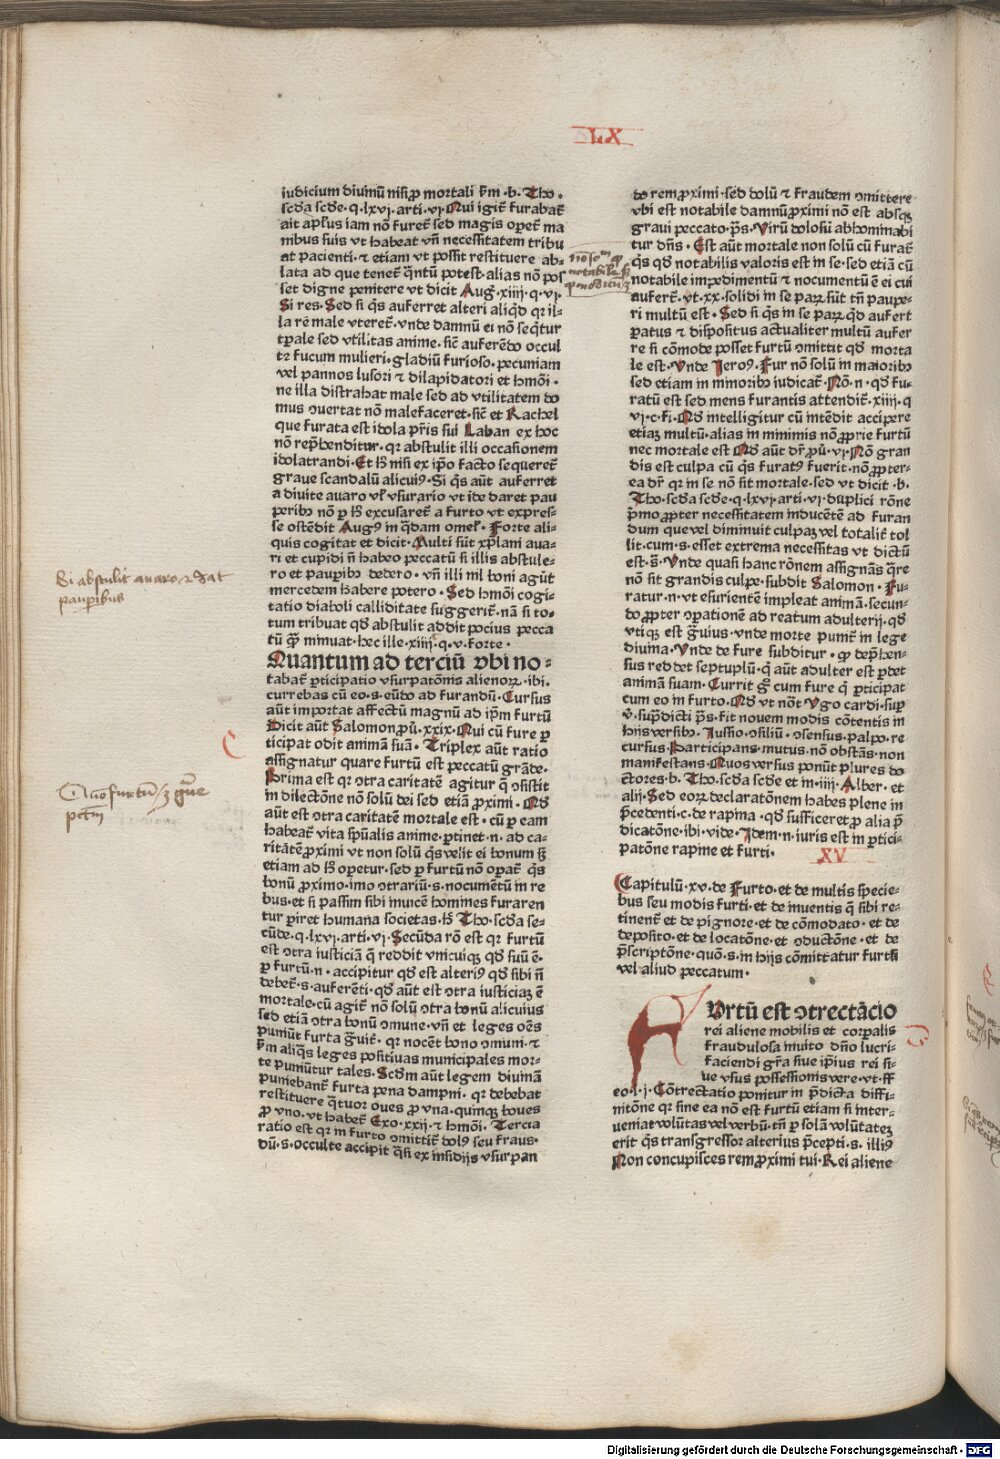 LX
iudicium diuinū nisi ꝓ mortali ẜm .b. Tho.
scḋa scḋe. q. lxvj. arti. vj. Qui igit̃ furabat̃
ait apl̃us iam nō furet̃ sed magis operet̃ ma
nibus suis vt habeat vñ necessitatem tribu
at pacienti. ⁊ etiam vt possit restituere ab-
lata ad que tenet̃ q̃ntū potest. alias nō pos
set digne penitere vt dicit Aug̃. xiiij. q. vj.
Si res. Sed si q̃s auferret alteri aliq̃d qr il-
la rē male vteret̃. vnde damnū ei nō seq̃tur
tꝑale sed vtilitas anime. sic̃ auferēdo occul
te fucum mulieri. gladiū furioso. pecuniam
vel pannos lusori ⁊ dilapidatori et hmōi.
ne illa distrahat male sed ad vtilitatem do
mus ꝯuertat nō malefaceret. sic̃ et Rachel
que furata est idola pr̃is sui Laban ex hoc
nō rep̄henditur. qr abstulit illi occasionem
idolatrandi. Et hꝫ nisi ex ip̄o facto sequeret̃
graue scandalū alicui⁹. Si q̃s aūt auferret
a diuite auaro vl̃ vsurario vt ide daret pau
peribꝫ nō ꝑ hꝫ excusaret̃ a furto vt expres-
se ostēdit Aug⁹ in q̃dam omel̃. Forte ali-
quis cogitat et dicit. Multi sūt xp̄iani aua-
ri et cupidi ñ habeo peccatū si illis abstule-
ro et paupibꝫ dedero. vñ illi mł boni agūt
mercedem habere potero. Sed hmōi cogi-
tatio diaboli calliditate suggerit̃. nā si to-
tum tribuat qđ abstulit addit pocius pecca
tū q̃ꝫ minuat. hec ille. xiiij. q. v. forte.
Quantum ad terciū vbi no-
tabat̃ ꝑticipatio vsurpatōnis alienoꝝ. ibi.
currebas cū eo. s. eūdo ad furandū. Cursus
aūt importat affectū magnū ad ip̄m furtū
Dicit aūt Salomon ꝓū. xxix. Qui cū fure ꝑ
ticipat odit animā suā. Triplex aūt ratio
assignatur quare furtū est peccatū grāde.
Prima est qr ꝯtra caritatē agitur q̄ ꝯsistit
in dilectōne nō solū dei sed etiā ꝓximi. Qđ
aūt est ꝯtra caritatē mortale est. cū ꝑ eam
habeat̃ vita sp̄ualis anime. ꝑtinet .n. ad ca-
ritātē ꝓximi vt non solū q̃s velit ei bonum sꝫ
etiam ad hꝫ oꝑetur. sed ꝑ furtū nō oꝑat̃ q̃s
bonū ꝓximo. imo ꝯtrariū. s. nocumētū in re
bus. et si passim sibi inuicē homines furaren
tur ꝑiret humana societas. hꝫ Tho. scḋa se-
cūde. q. lxvj. arti. vj. Secūda rō est qr furtū
est ꝯtra iusticiā q̄ reddit vnicuiqꝫ qđ suū ē.
ꝑ furtū .n. accipitur qđ est alteri⁹ qđ sibi ñ
debet̃. s. auferēti. qđ aūt est ꝯtra iusticiaꝫ ē
mortale. cū agit̃ nō solū ꝯtra bonū alicuius
sed etiā ꝯtra bonū ꝯmune. vñ et leges oēs
puniūt furta g̃uit̃. qr nocēt bono ꝯmuni. ⁊
ẜm aliq̃s leges positiuas municipales mor-
te puniūtur tales. Scḋm aūt legem diuinā
puniebant̃ furta pena dampni. qr debebat
restituere q̃tuor oues ꝓ vna. quinqꝫ boues
ꝓ vno. vt habet̃ Exo. xxij. ⁊ hmōi. Tercia
ratio est qr in furto ꝯmittit̃ dol⁹ seu fraus.
dū. s. occulte accipit q̃si ex insidijs vsurpan
Si abstulit auaro ⁊ dat
pauꝑibus
do rem ꝓximi. sed dolū ⁊ fraudem ꝯmittere
vbi est notabile damnū ꝓximi nō est absqꝫ
graui peccato. p̄s. Virū dolosū abhominabi
tur dn̄s. Est aūt mortale non solū cū furat̃
q̃s qđ notabilis valoris est in se. sed etiā cū
notabile impedimentū ⁊ nocumentū ē ei cui
aufert̃. vt. xx. solidi in se paꝝ sūt tñ paupe-
ri multū est. Sed si q̃s in se paꝝ q̃d aufert
ꝑatus ⁊ dispositus actualiter multū aufer
re si cōmode posset furtū ꝯmittit qđ morta
le est. Vnde Jero⁹. Fur nō solū in maioribꝫ
sed etiam in minoribꝫ iudicat̃. Nō .n. qđ fu-
ratū est sed mens furantis attendit̃. xiiij. q
vj. c. fi. Qđ intelligitur cū intēdit accipere
etiaꝫ multū. alias in minimis nō ꝓprie furtū
nec mortale est Qđ aūt dr̃ ꝓū. vj. Nō gran
dis est culpa cū q̃s furat⁹ fuerit. nō ꝓpter-
ea dr̃ qr in se nō sit mortale. sed vt dicit .b.
Tho. scḋa scḋe. q. lxvj. arti. vj. duplici rōne
p̄mo ꝓpter necessitatem inducētē ad furan
dum que vel diminuit culpaꝫ vel totalit̃ tol
lit. cum. s. esset extrema necessitas vt dictū
est. s̄. Vnde quasi hanc rōnem assignās q̃re
nō sit grandis culpe. subdit Salomon. Fu-
ratur .n. vt esurientē impleat animā. secun-
do ꝓpter ꝯpationē ad reatum adulterij. qđ
vtiqꝫ est g̃uius. vnde morte punit̃ in lege
diuina. Vnde de fure subditur. ꝙ dep̄hen-
sus reddet septuplū. q̄ aūt adulter est ꝑdet
animā suam. Currit g̊ cum fure q̄ ꝑticipat
cum eo in furto. Qđ vt nōt̃ Vgo cardi. suꝑ
v̄. sup̄dicti p̄s. fit nouem modis cōtentis in
hijs versibꝫ. Jussio. ꝯsiliū. ꝯsensus. palpo. re
cursus. Participans. mutus. nō obstās. non
manifestans. Quos versus ponūt plures do
ctores .b. Tho. scḋa scḋe et in. iiij. Alber. et
alij. Sed eoꝝ declaratōnem habes plene in
p̄cedenti. c. de rapina. qđ sufficeret ꝓ alia p̄
dicatōne. ibi vide. Idem .n. iuris est in ꝑtici-
patōne rapine et furti.
XV
Capitulū. xv. de Furto. et de multis specie-
bus seu modis furti. et de inuentis q̄ sibi re-
tinent̃ et de pignore. et de cōmodato. et de
deposito. et de locatōne. et ꝯductōne. et de
p̄scriptōne. quō .s. in hijs cōmittatur furtū
vel aliud peccatum.
Furtū est ꝯtrectācio
rei aliene mobilis et corꝑalis
fraudulosa inuito dn̄o lucri-
faciendi gr̃a siue ip̄ius rei si-
ue vsus possessionis vere. vt. ff
eo. l. j. Cōtrectatio ponitur in p̄dicta diffi-
nitōne qr sine ea nō est furtū etiam si inter-
ueniat volūtas vel verbū. tñ ꝑ solā volūtateꝫ
erit q̃s transgressor alterius p̄cepti. s. illi⁹
Non concupisces rem ꝓximi tui. Rei aliene
Digitalisierung gefördert durch die Deutsche Forschungsgemeinschaft - DFG